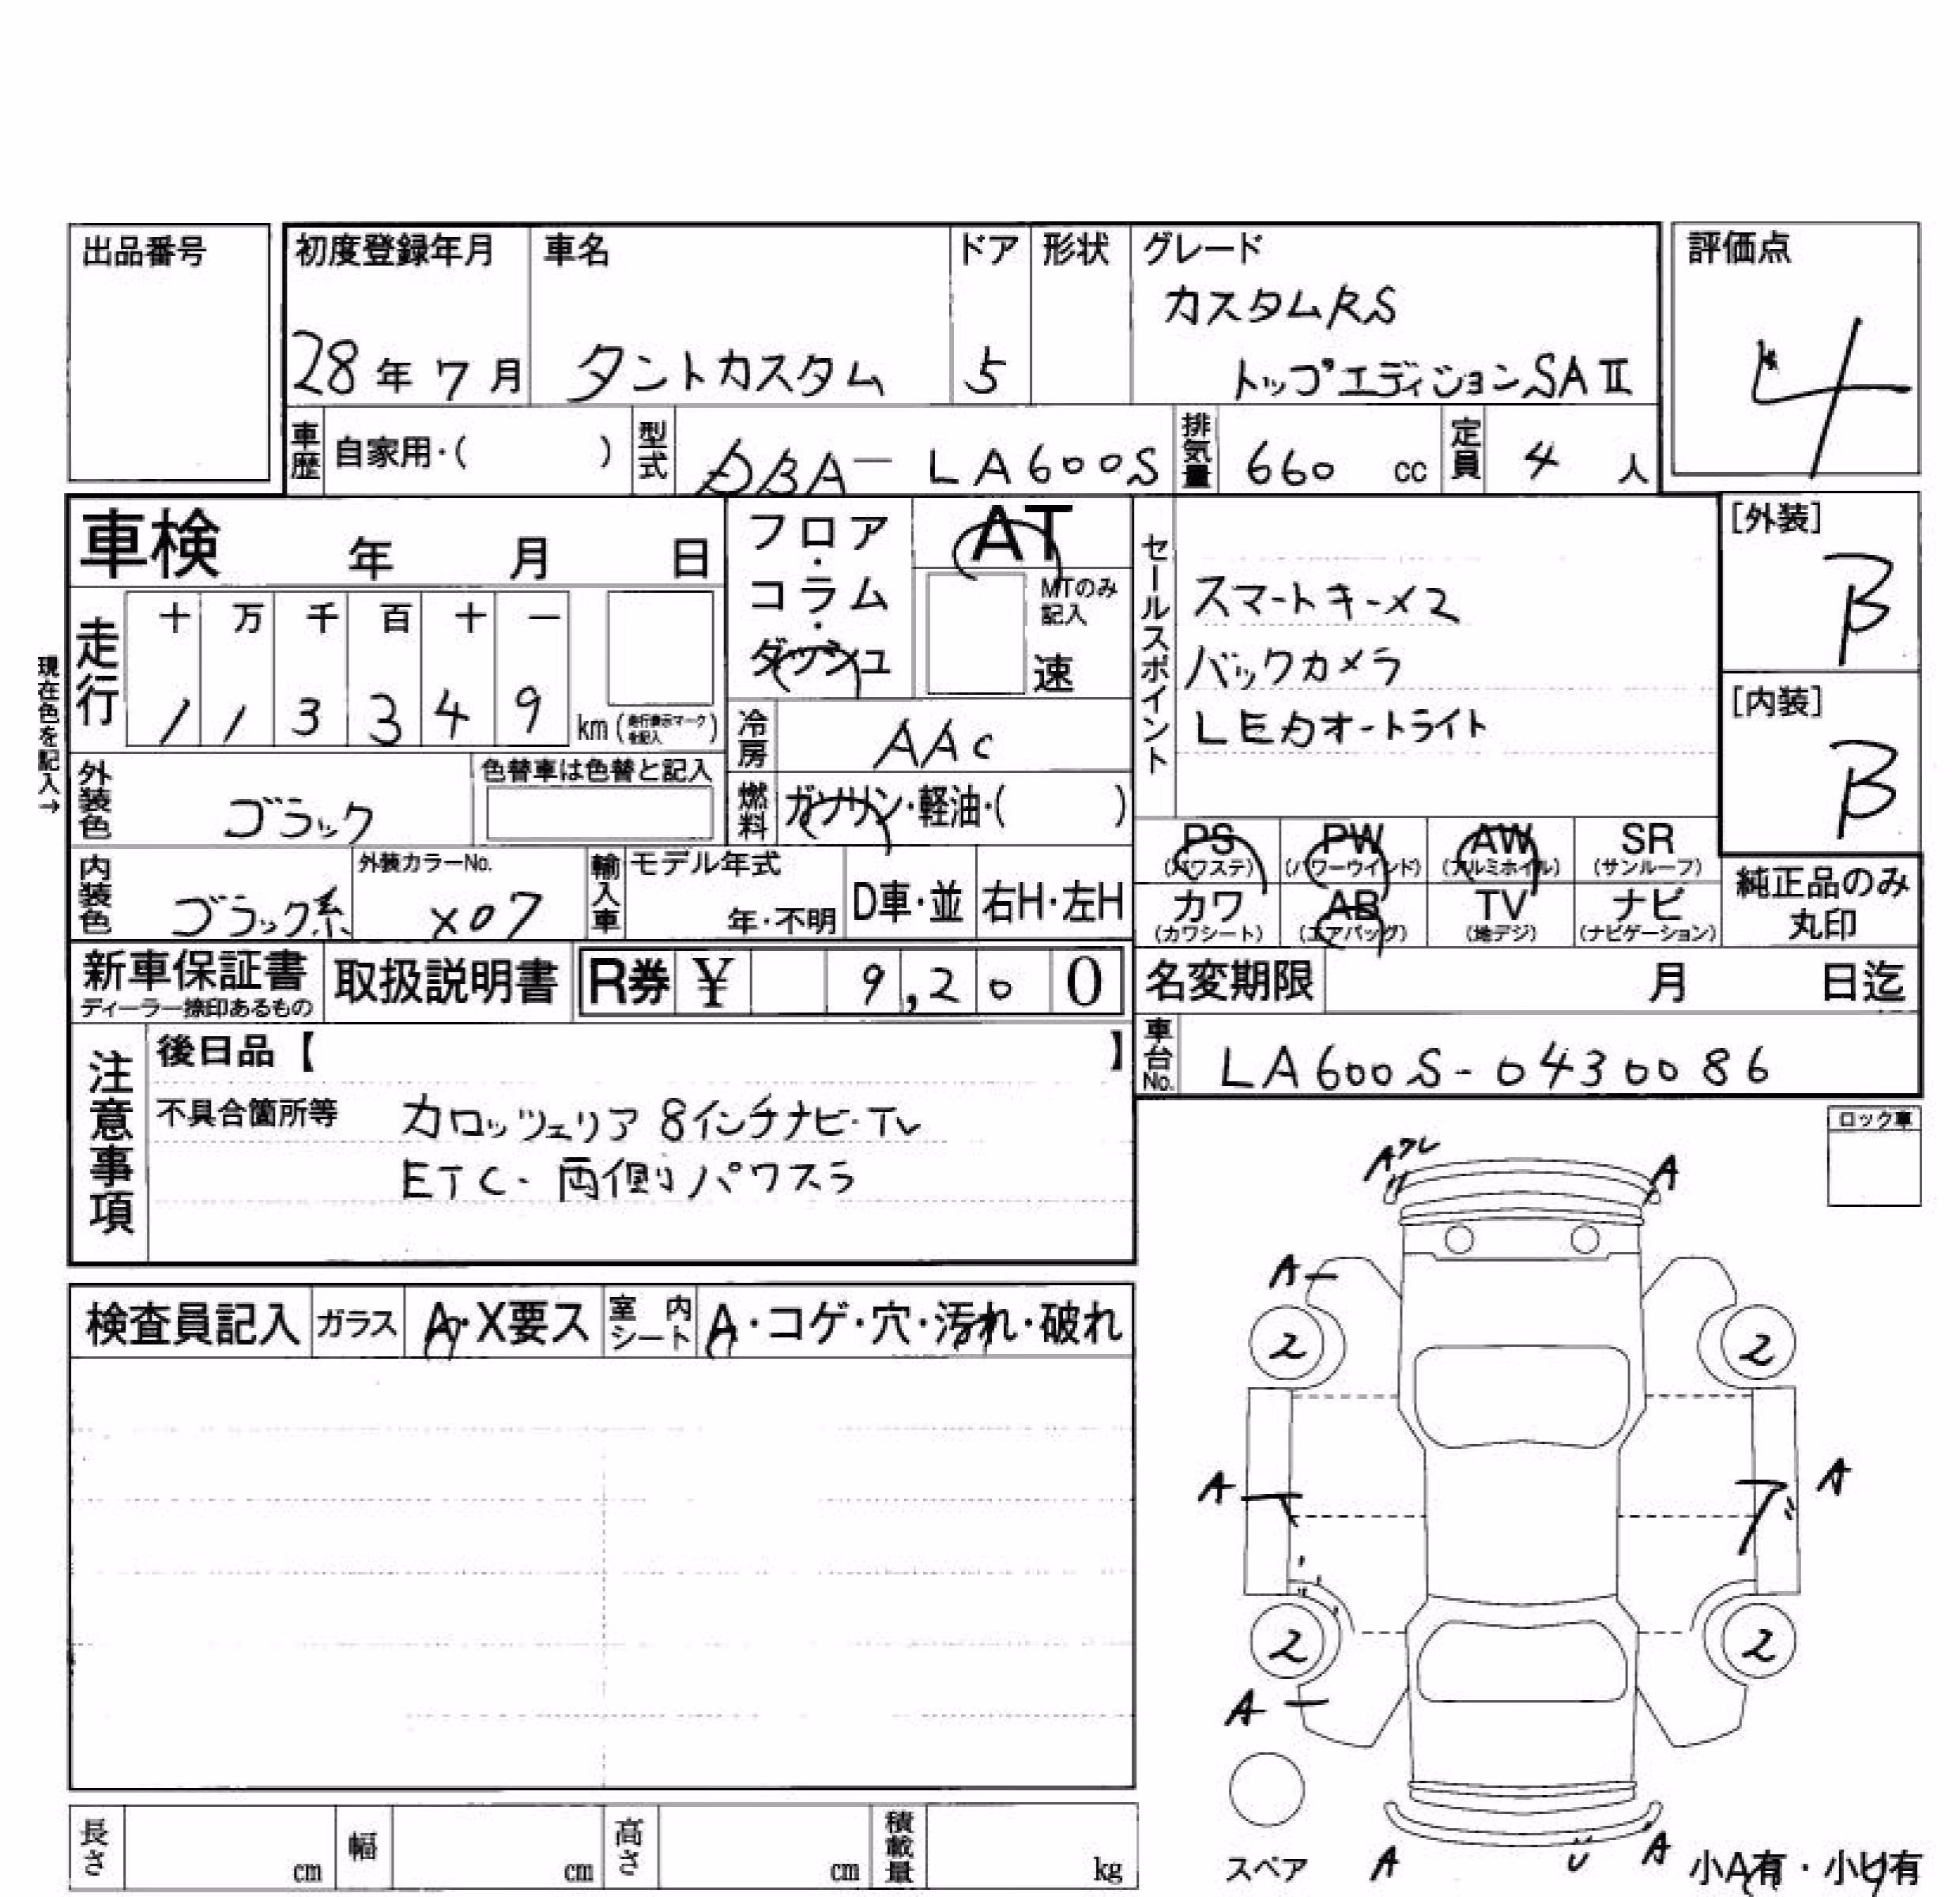 出品番号
初度登録年月 車名 ドア 形状 グレード 評価点
カスタムRS
28年 7月 タントカスタム 5 トップエディションSAⅡ
4
車歴 自家用・( ) 型式 DBA-LA600S 排気量 660 cc 定員 4 人
車検 年 月 日
フロア・コラム・ダッシュ
AT
MTのみ記入
速
セールスポイント
スマートキーメ2
バックカメラ
LEDオートライト
[外装]
B
[内装]
B
現在色を記入→
走行 十 万 千 百 十 一
1 1 3 3 4 9 km (走行表示マークを記入)
冷房 AAC
外装色 ブラック 色替車は色替と記入
燃料 ガソリン・軽油・( )
PS (パワステ) PW (パワーウインド) AW (アルミホイル) SR (サンルーフ)
カワ (カワシート) AB (エアバッグ) TV (地デジ) ナビ (ナビゲーション)
純正品のみ
丸印
内装色 ブラック系 外装カラーNo. X07 輸入車 モデル年式 年・不明 D車・並 右H・左H
新車保証書 ディーラー捺印あるもの 取扱説明書 R券 ¥ 9,200
名変期限 月 日迄
車台No. LA600S-0430086
注意事項
後日品【 】
不具合箇所等 カロッツェリア 8インチナビ・TV
ETC・両側パワスラ
ロック車
A ワレ A
A
2 2
A A
2 2
A
スペア A U A 小A有・小U有
検査員記入 ガラス A・X要ス 室内シート A・コゲ・穴・汚れ・破れ
長さ cm 幅 cm 高さ cm 積載量 kg